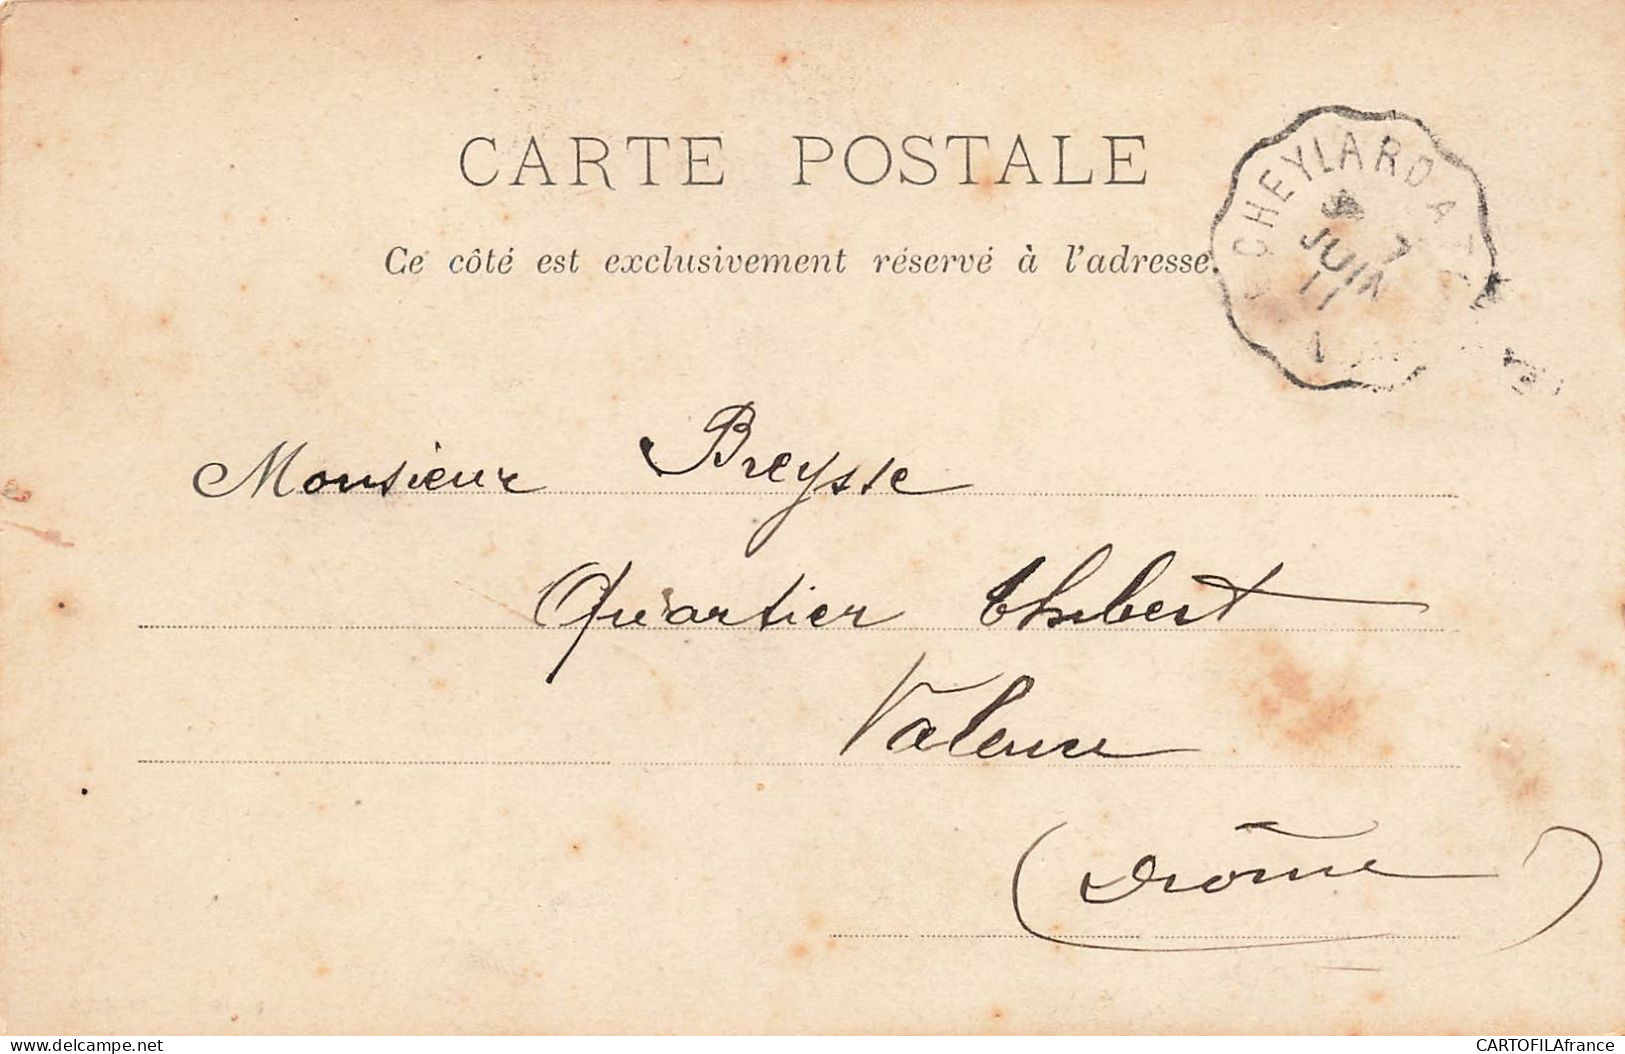 CARTE POSTALE
Ce côté est exclusivement réservé à l'adresse.
CHEYLARD A
7
JUIN
11
Monsieur Breysse
Quartier Thibert
Valence
(Drôme)
delcampe.net
CARTOFILAfrance